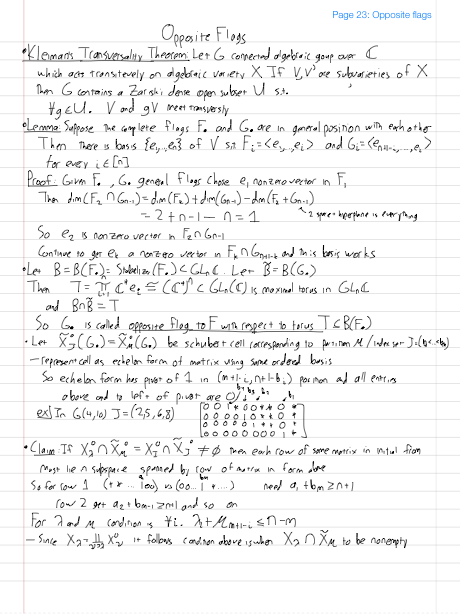 Page 23: Opposite flags
Opposite Flags
• Kleiman's Transversality Theorem: Let G connected algebraic group over ℂ
which acts transitively on algebraic variety X. If V, V' are subvarieties of X
Then G contains a Zariski dense open subset U s.t.
∀g∈U. V and gV meet transversly
• Lemma: Suppose the complete flags F. and G. are in general position with each other
Then there is basis {e₁,...,eₙ} of V s.t Fᵢ=<e₁,...,eᵢ> and Gᵢ=<eₙ₊₁₋ᵢ,...,eₙ>
for every i∈[n]
Proof: Given F., G. general flags chose e₁ nonzero vector in F₁
Then dim(F₂∩Gₙ₋₁)=dim(F₂)+dim(Gₙ₋₁)-dim(F₂+Gₙ₋₁)
=2+n-1-n=1
2 space + hyperplane is everything
So e₂ is nonzero vector in F₂∩Gₙ₋₁
Continue to get eₖ a nonzero vector in Fₖ∩Gₙ₊₁₋ₖ and this basis works
• Let B=B(F.)=Stabilizer(F.)<GLₙℂ. Let B̃=B(G.)
Then T=∏ᵢ₌₁ⁿ ℂ*eᵢ≅(ℂ*)ⁿ<GLₙ(ℂ) is maximal torus in GLₙℂ
and B∩B̃=T
So G. is called opposite flag to F with respect to torus T≤B(F.)
• Let X̃°_J(G.)=X̃°_μ(G.) be schubert cell corresponding to partition μ/index set J=(b₁<...<bₘ)
- represent cell as echelon form of matrix using same ordered basis
So echelon form has pivot of 1 in (m+1-i, n+1-bᵢ) position and all entries
above and to left of pivot are 0
b₄ b₃ b₂ b₁
ex] In G(4,10) J=(2,5,6,8)
• Claim: If X°_λ∩X̃°_μ=X°_I∩X̃°_J≠∅ then each row of some matrix in initial from
must lie n subspace spanned by row of matrix in form above
So for row 1 (**...100) vs (00...1*...) need a₁+bₘ≥n+1
row 2 get a₂+bₘ₋₁≥n+1 and so on
For λ and μ condition is ∀i. λᵢ+μₘ₊₁₋ᵢ≤n-m